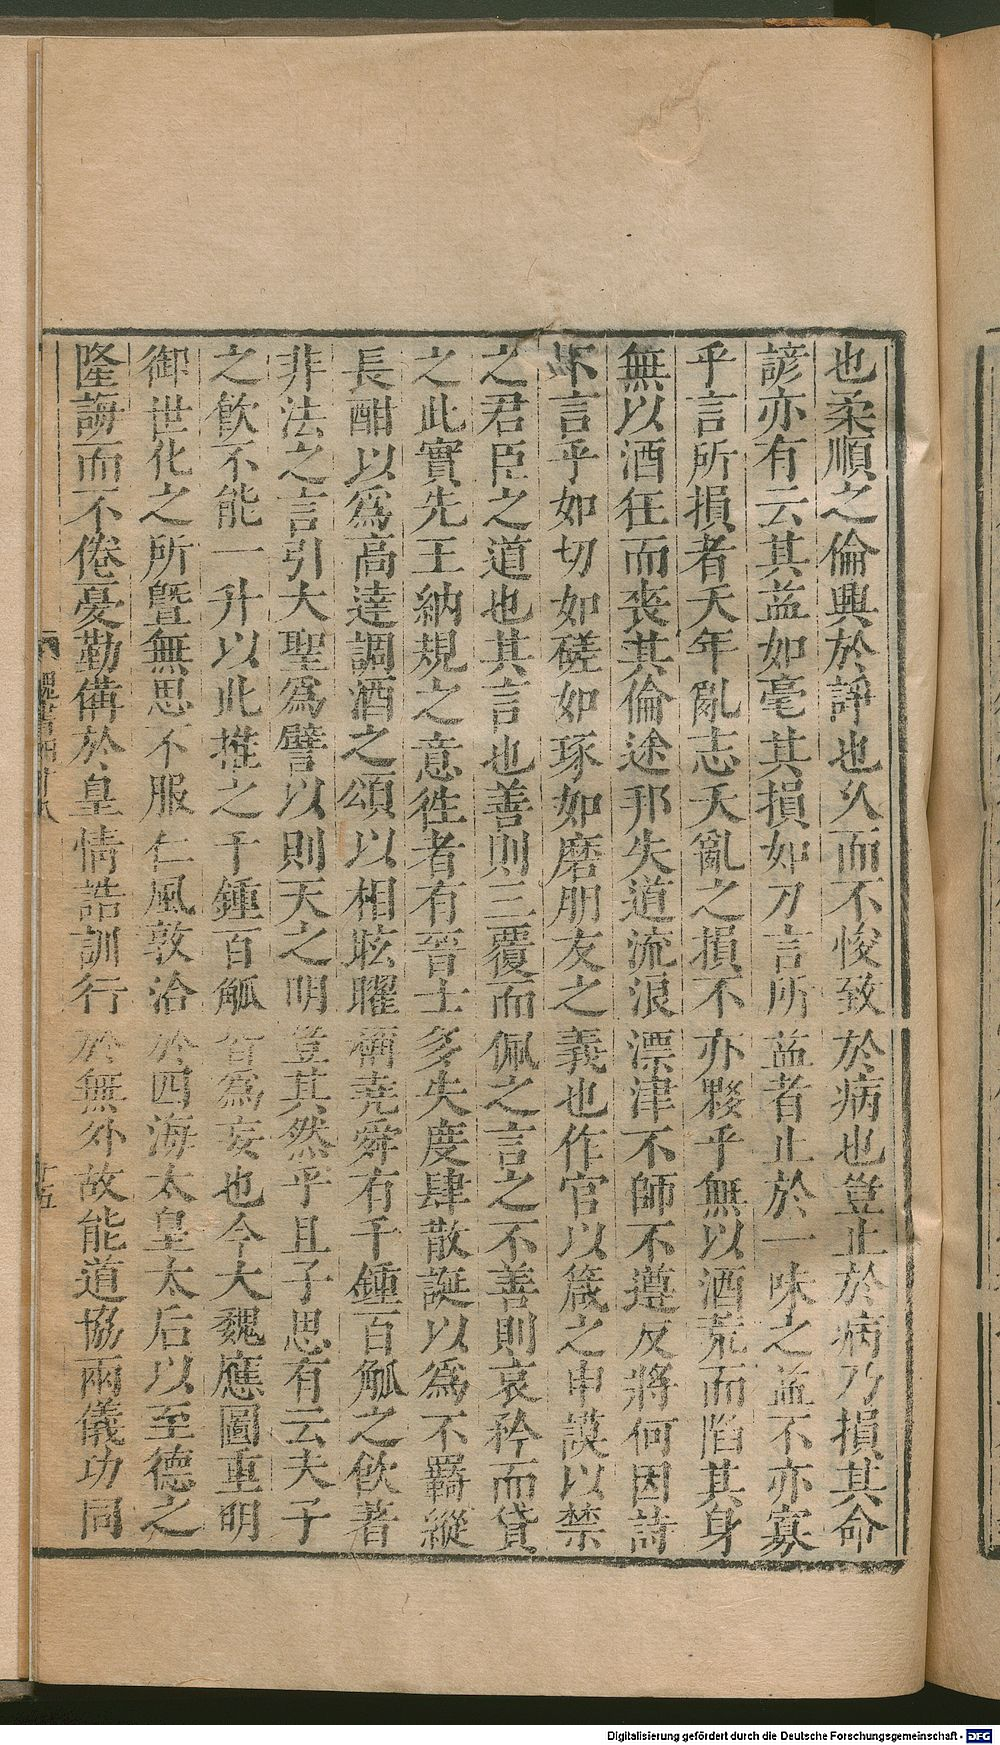 也柔順之倫興於諍也久而不悛致於病也豈止於病乃損其命
諺亦有云其益如毫其損如刀言所益者止於一味之益不亦寡
乎言所損者夭年亂志夭亂之損不亦夥乎無以酒荒而陷其身
無以酒狂而喪其倫迷邦失道流浪漂津不師不遵反將何因詩
不言乎如切如磋如琢如磨朋友之義也作官以箴之申謨以禁
之君臣之道也其言也善則三覆而佩之言之不善則哀矜而貸
之此實先王納規之意徃者有晉士多失度肆散誕以為不羈縱
長酣以爲高達調酒之頌以相眩曜稱堯舜有千鍾百觚之飲著
非法之言引大聖爲譬以則天之明豈其然乎且子思有云夫子
之飲不能一升以此推之千鍾百觚皆爲妄也今大魏應圖重明
御世化之所曁無思不服仁風敦洽於四海太皇太后以至德之
隆誨而不倦憂勤備於皇情誥訓行於無外故能道協兩儀功同
魏書四十八
十五
Digitalisierung gefördert durch die Deutsche Forschungsgemeinschaft - DFG